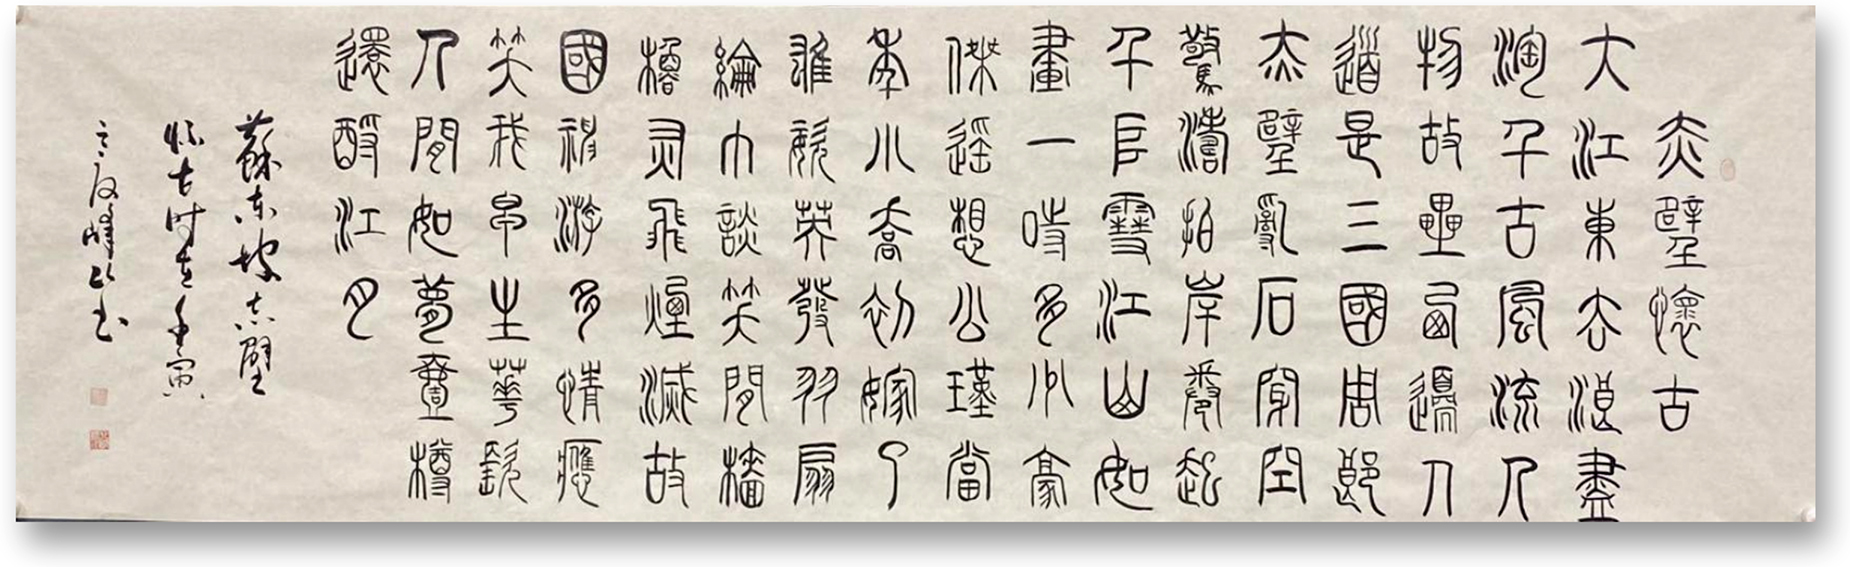 赤壁懷古
大江東去浪盡
淘千古風流人
物故壘西邊人
道是三國周郎
赤壁亂石穿空
驚濤拍岸卷起
千堆雪江山如
畫一時多少豪
傑遥想公瑾當
年小喬初嫁了
雄姿英發羽扇
綸巾談笑間檣
櫓灰飛煙滅故
國神游多情應
笑我早生華髮
人間如夢壹樽
還酹江月
蘇东坡赤壁
怀古时在壬寅
之夏书